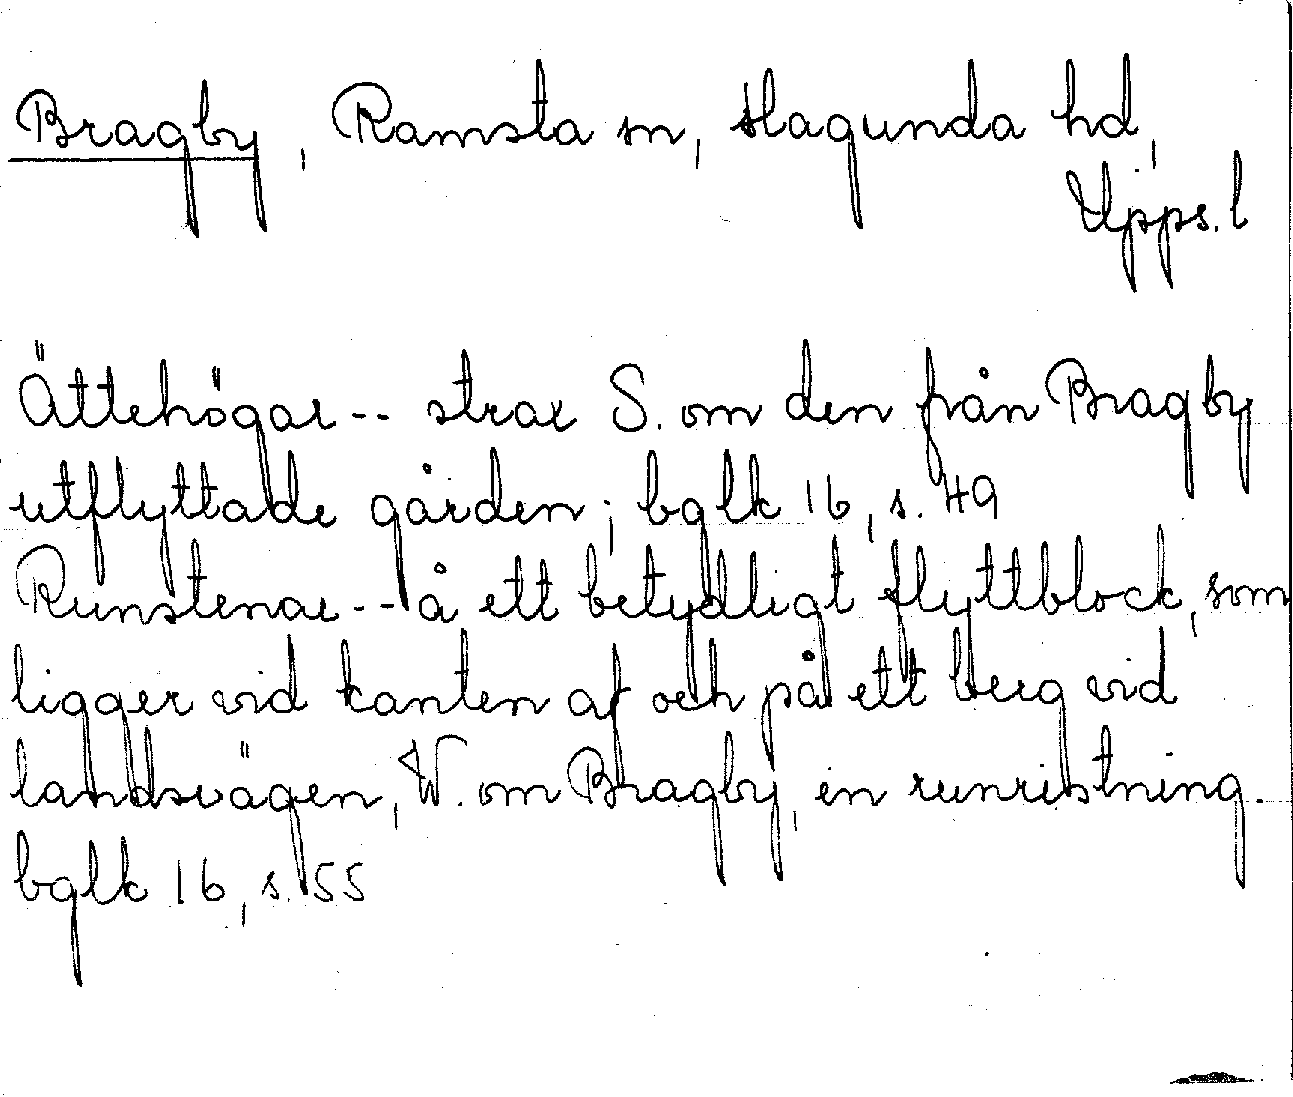 Bragby, Ramsta sn, Hagunda hd,
Upps. l
Ättehögar -- strax S. om den från Bragby
utflyttade gården; bglk 16, s. 49
Runstenar -- å ett betydligt flyttblock, som
ligger vid kanten af och på ett berg vid
landsvägen, V. om Bragby, en runristning.
bglk 16, s. 55